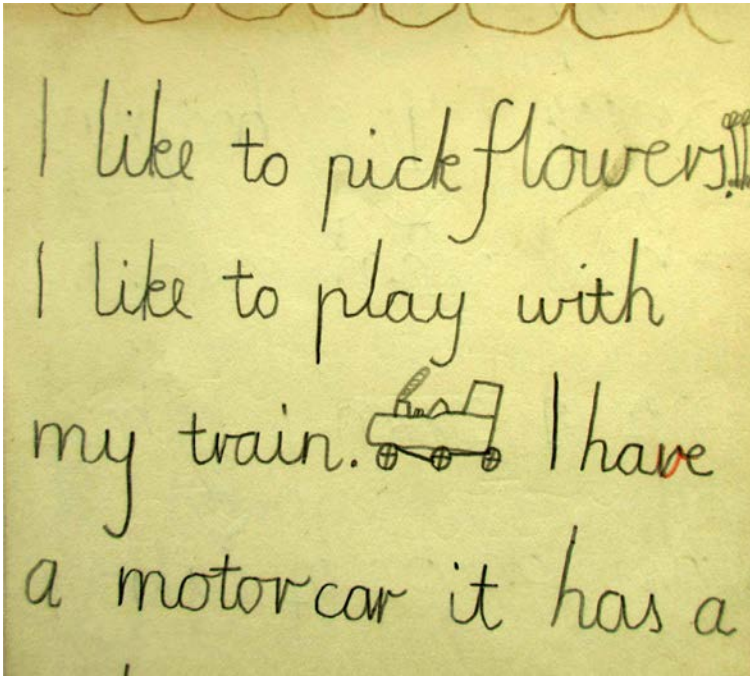 I like to pick flowers.
I like to play with
my train. I have
a motor car it has a